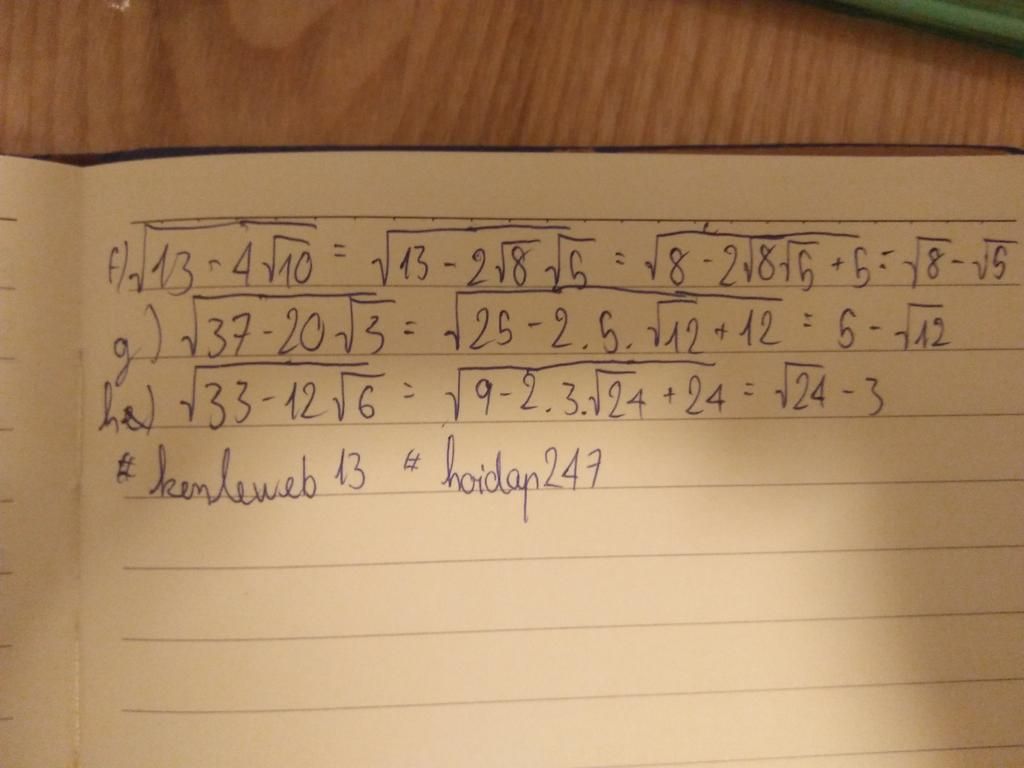 f) √(13 - 4√10) = √(13 - 2√8 √5) = √(8 - 2√8√5 + 5) = √8 - √5
g) √(37 - 20√3) = √(25 - 2.5.√12 + 12) = 5 - √12
h) √(33 - 12√6) = √(9 - 2.3.√24 + 24) = √24 - 3
# kenleweb 13 # hoidap247